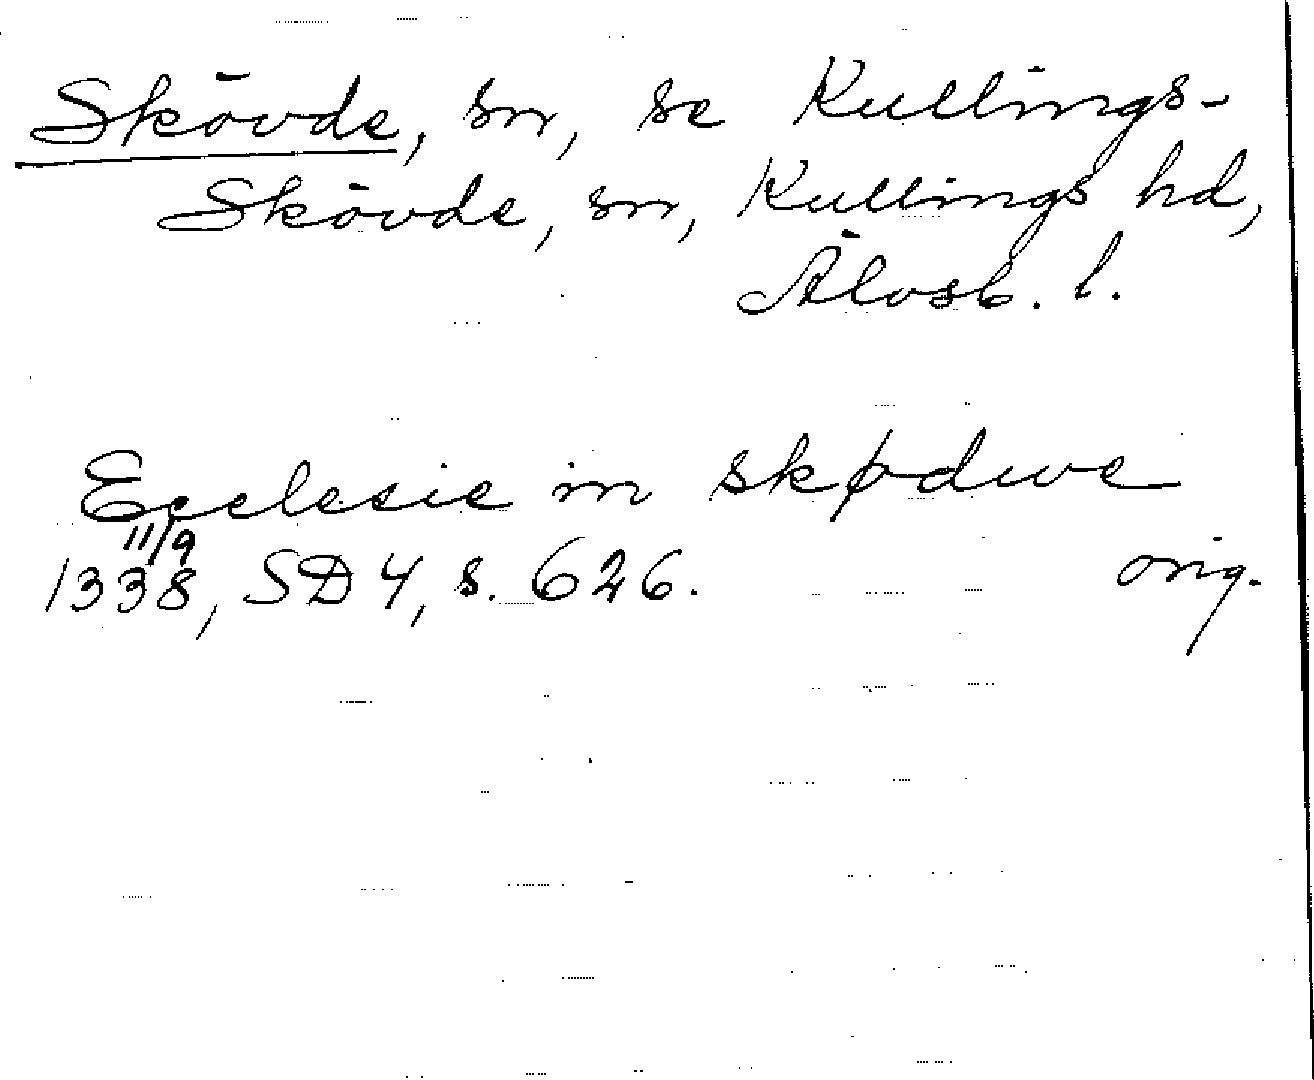 Skövde, sn, se Kullings-
Skövde, sn, Kullings hd,
Älvsb. l.
Ecclesie in skødwe
11/9
1338, SD 4, s. 626. orig.